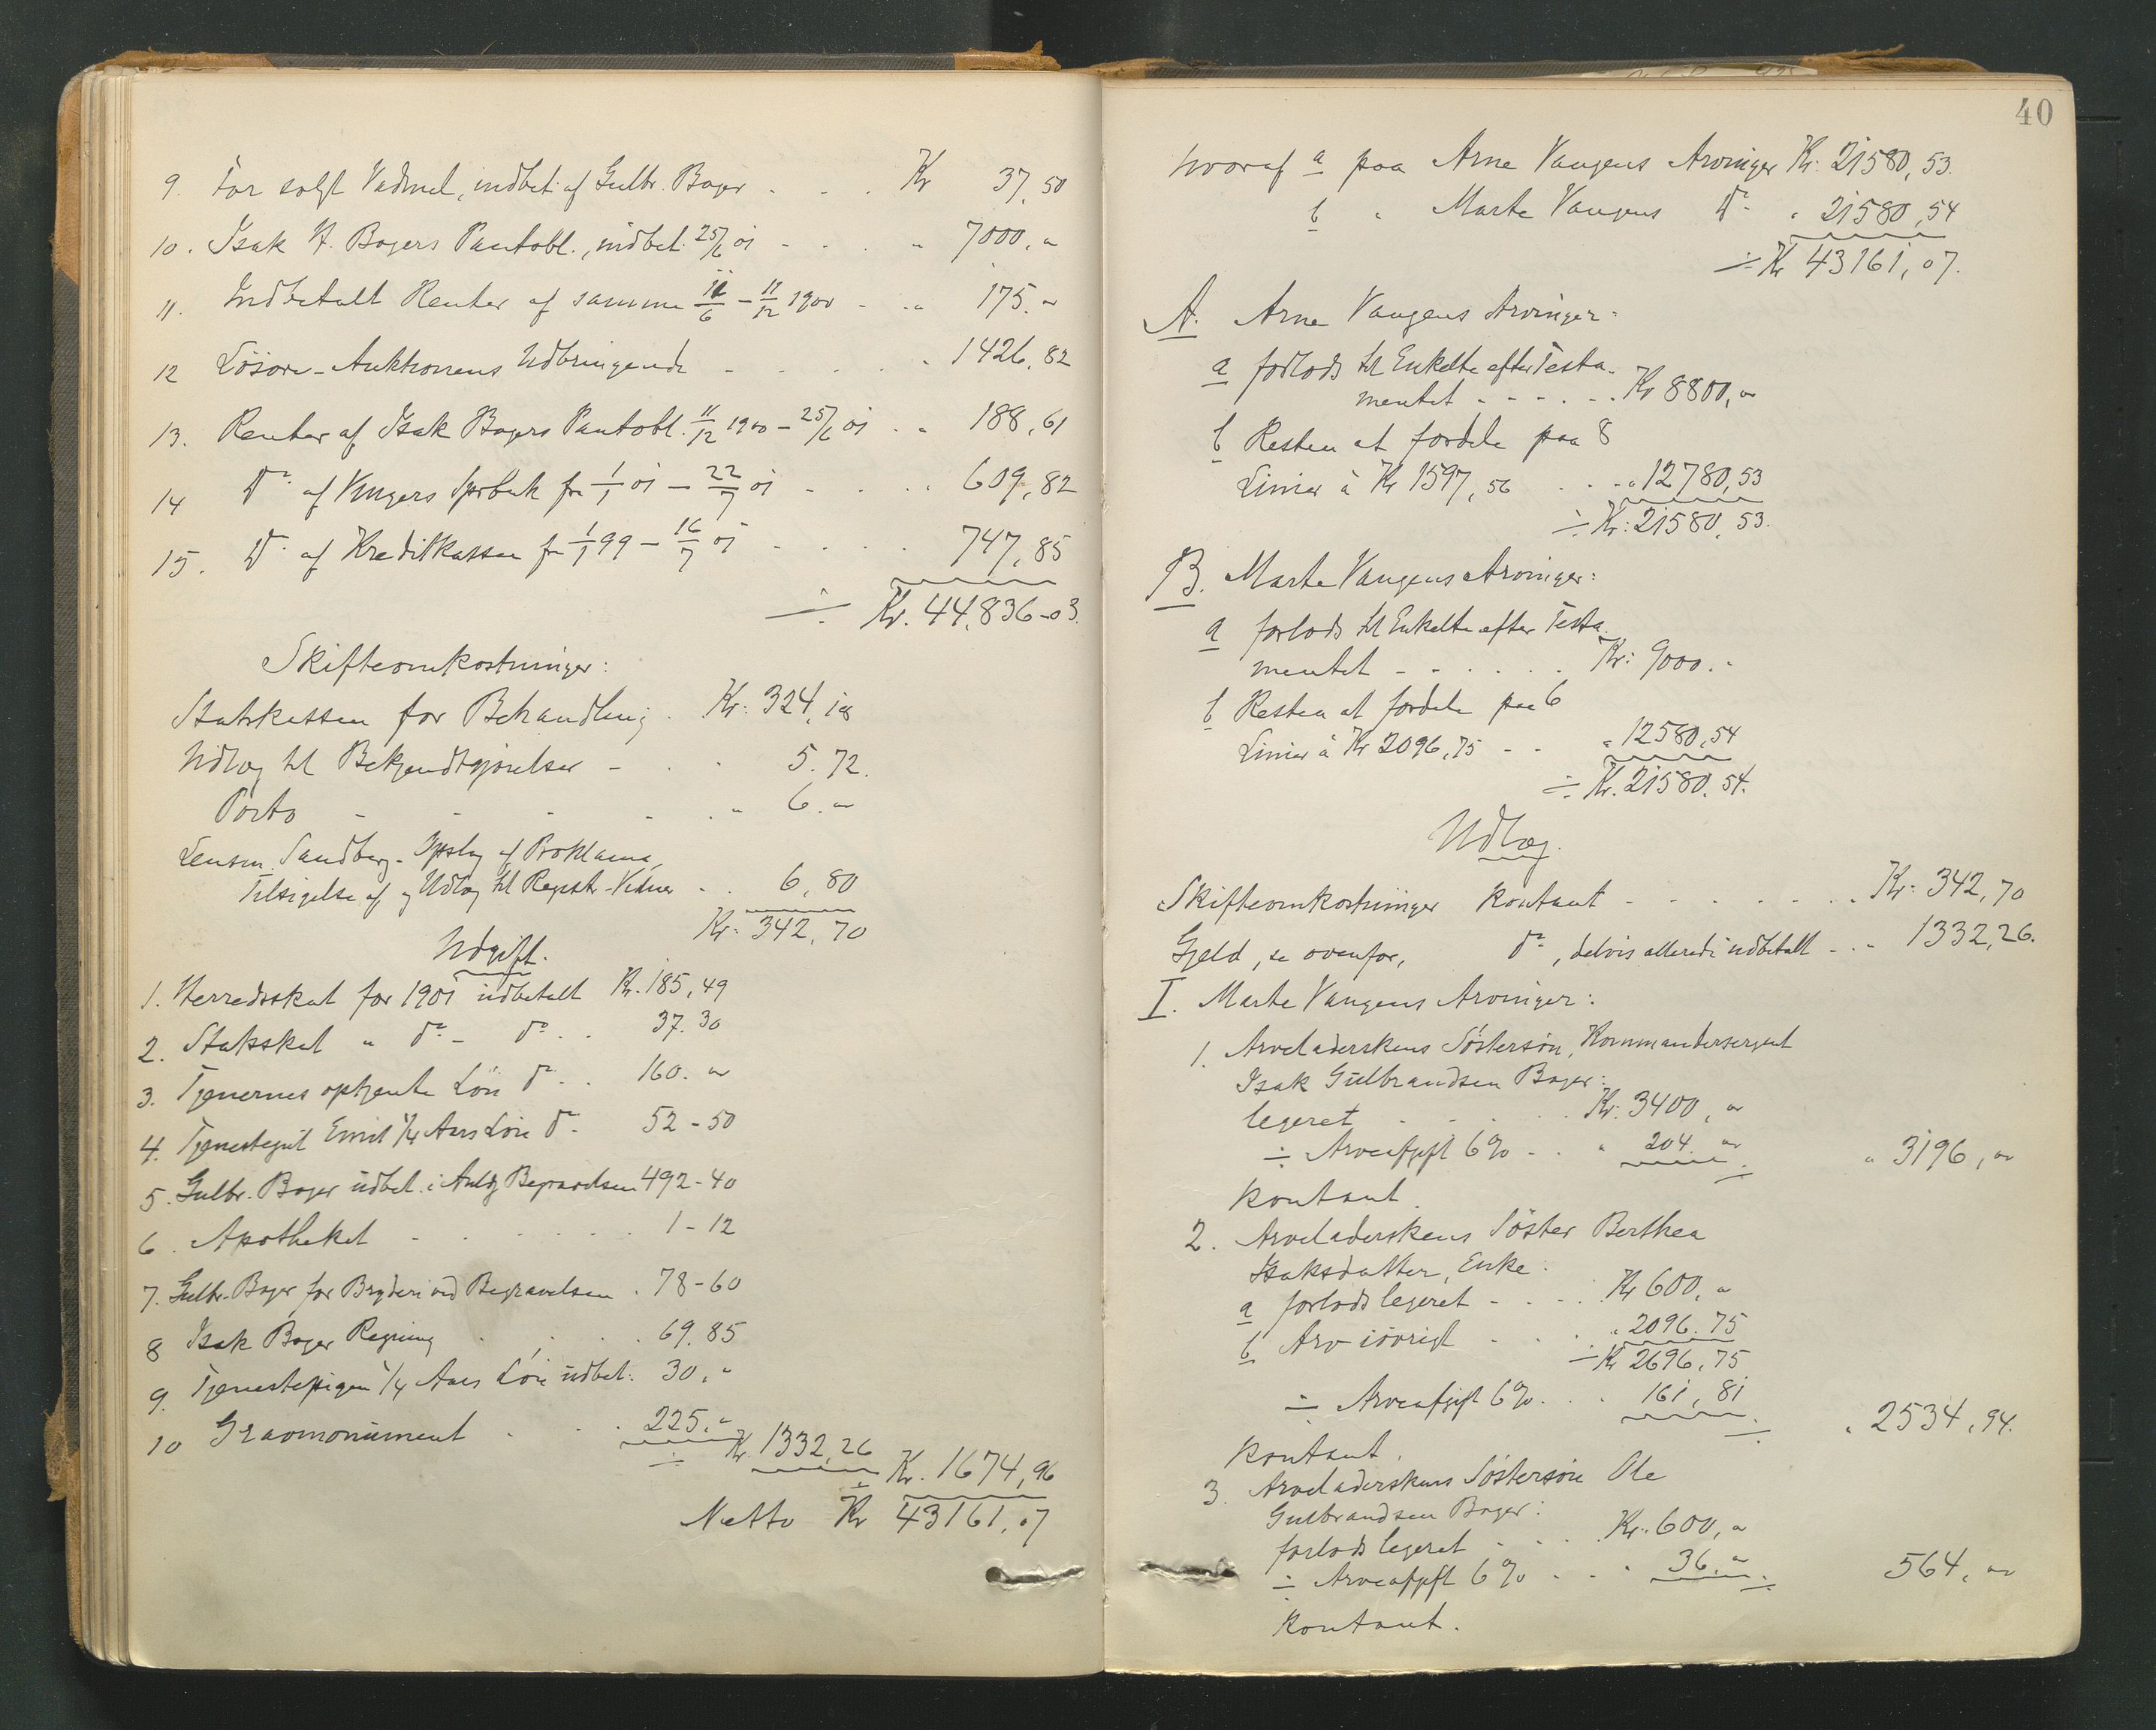 9. For solgt Vadmel, indbet. af Gulbr. Bager . . . Kr 37,50
10. Isak H. Bagers Pantobl., indbet. 25/6 01 - . . . " 7000,"
11. Indbetalt Renter af samme 11/6 - 11/12 1900 - . " 175."
12 Lösöre-Auktionens Udbringende - . . . . " 1426,82
13. Renter af Isak Bagers Pantobl. 11/12 1900 - 25/6 01 . " 188,61
14 Do af Vingers Sprbnk fra 1/1 01 - 22/7 01 - . . " 609,82
15. Do af Kreditkassen fra 1/1 99 - 16/7 01 - . . . 747,85
÷ Kr. 44,836-03.
Skifteomkostninger:
Statskassen for Behandling . Kr: 324,18
Udlæg til Bekjendtgjörelser - . . 5.72.
Porto - - - - . " 6."
Lensm. Sandberg. Opslag af Proklama,
Tilsigelse af og Udlæg til Registr.-Vidner - . 6,80
Kr: 342,70
Udgift.
1. Herredsskat for 1901 udbetalt Kr. 185,49
2. Statsskat " do - do . . 37.30
3. Tjenernes optjente Lön do . . 160."
4. Tjenestegut Emil 1/4 Aars Lön do - 52-50
5. Gulbr. Bager udbet. i Anlg Begravelsen 492-40
6. Apotheket - . . . . . 1-12
7. Gulbr. Bager for Bryderi ved Begravelsen . 78-60
8 Isak Bager Regning . . . . 69.85
9. Tjenestepigen 1/4 Aars Lön udbet: 30,"
10 Gravmonument . . . 225."
÷ Kr. 1332,26 Kr. 1674,96
Netto Kr 43161,07
40
hvoraf a paa Arne Vangens Arvinger Kr: 21580,53.
b " Marte Vangens Do - " 21580,54
÷ Kr 43161,07.
A. Arne Vangens Arvinger:
a forlods til Enkelte efter Testa-
mentet - - - - . . Kr 8800,"
b Resten at fordele paa 8
Linier à Kr 1597,56 . . . " 12780,53
÷ Kr: 21580,53.
B. Marte Vangens Arvinger:
a forlods til Enkelte efter Testa-
mentet - - . . . . Kr: 9000.-
b Resten at fordele paa 6
Linier à Kr 2096,75 - - " 12580,54
÷ Kr. 21580,54.
Udlæg.
Skifteomkostninger kontant - - . . . . . Kr: 342,70
Gjeld, se ovenfor, do, delvis allerede udbetalt - . " 1332,26.
I. Marte Vangens Arvinger:
1. Arveladerskens Söstersön, Kommandersergent
Isak Gulbrandsen Bager:
legeret - . . . . Kr: 3400,"
÷ Arveafgift 6% - . " 204."
" 3196,"
kontant.
2. Arveladerskens Söster Berthea
Isaksdatter, Enke:
a forlods legeret - . . . Kr 600,"
b Arv iövrigt - . . " 2096.75
÷ Kr 2696,75
÷ Arveafgift 6% . . . 161,81
" 2534,94.
kontant.
3. Arveladerskens Söstersön Ole
Gulbrandsen Bager:
forlods legeret - . . . Kr: 600,"
÷ Arveafgift 6% - . . 36."
564,"
kontant.